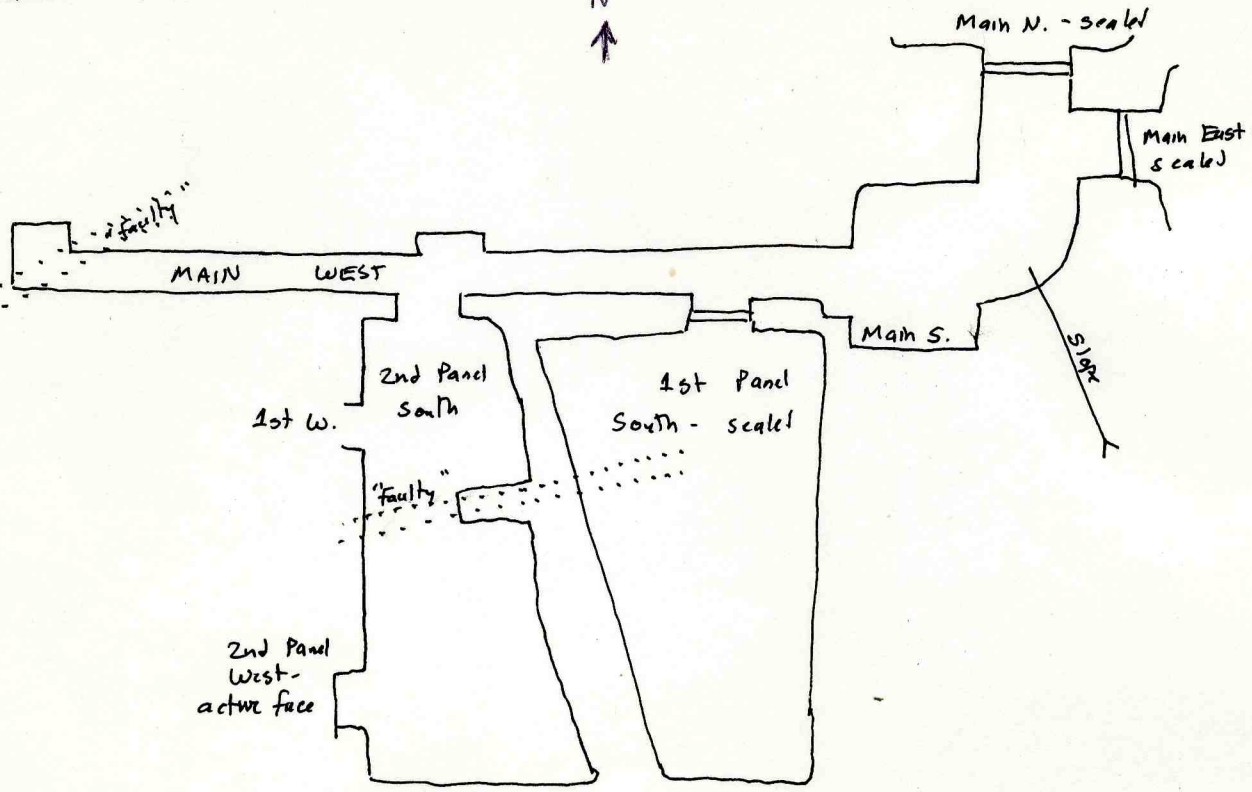 N
Main N. - sealed
Main East
sealed
"faulty"
MAIN WEST
Main S.
Slope
2nd Panel
South
1st Panel
South - sealed
1st W.
"Faulty"
2nd Panel
West-
active face